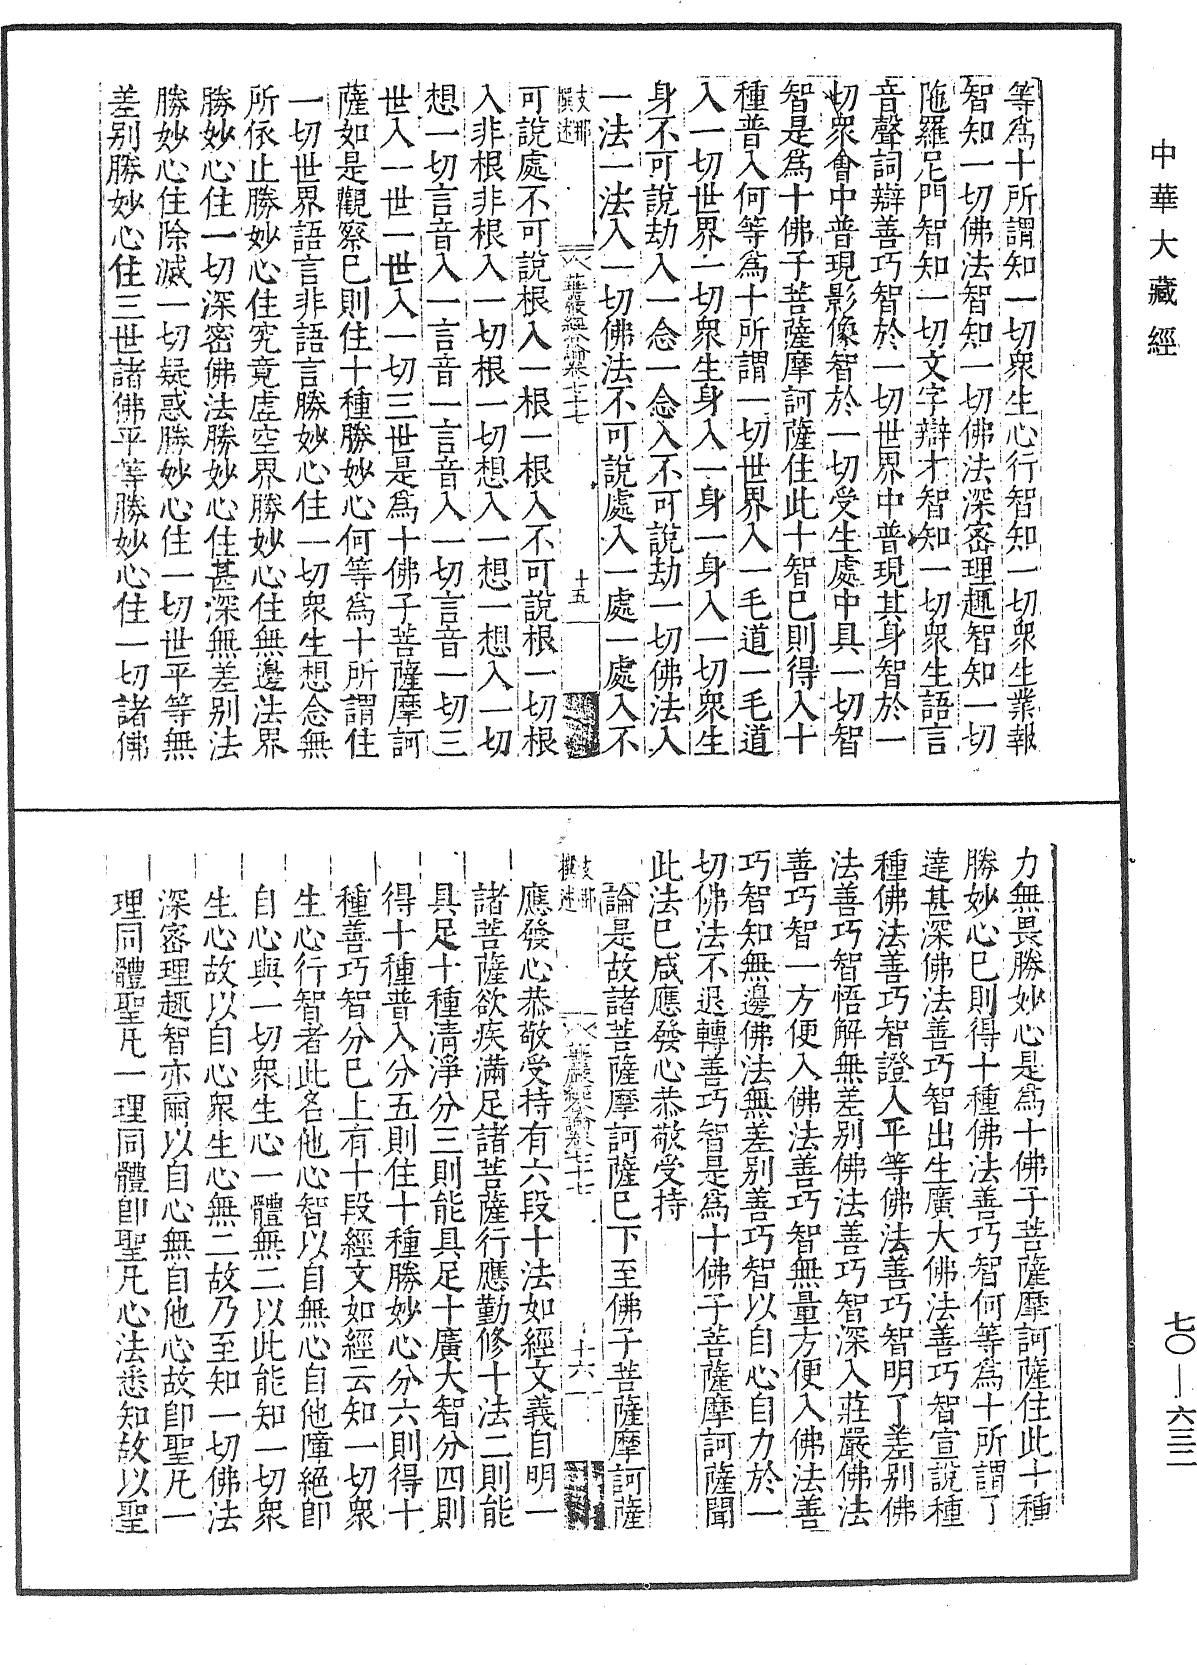 中華大藏經
等爲十所謂知一切衆生心行智知一切衆生業報
智知一切佛法智知一切佛法深密理趣智知一切
陁羅尼門智知一切文字辯才智知一切衆生語言
音聲詞辯善巧智於一切世界中普現其身智於一
切衆會中普現影像智於一切受生處中具一切智
智是爲十佛子菩薩摩訶薩住此十智巳則得入十
種普入何等爲十所謂一切世界入一毛道一毛道
入一切世界一切衆生身入一身一身入一切衆生
身不可說劫入一念一念入不可說劫一切佛法入
一法一法入一切佛法不可說處入一處一處入不
支那撰述
華嚴經合論卷七十七
十五
可說處不可說根入一根一根入不可說根一切根
入非根非根入一切根一切想入一想一想入一切
想一切言音入一言音一言音入一切言音一切三
世入一世一世入一切三世是爲十佛子菩薩摩訶
薩如是觀察巳則住十種勝妙心何等爲十所謂住
一切世界語言非語言勝妙心住一切衆生想念無
所依止勝妙心住究竟虛空界勝妙心住無邊法界
勝妙心住一切深密佛法勝妙心住甚深無差別法
勝妙心住除滅一切疑惑勝妙心住一切世平等無
差別勝妙心住三世諸佛平等勝妙心住一切諸佛
力無畏勝妙心是爲十佛子菩薩摩訶薩住此十種
勝妙心巳則得十種佛法善巧智何等爲十所謂了
達甚深佛法善巧智出生廣大佛法善巧智宣說種
種佛法善巧智證入平等佛法善巧智明了差別佛
法善巧智悟解無差別佛法善巧智深入莊嚴佛法
善巧智一方便入佛法善巧智無量方便入佛法善
巧智知無邊佛法無差別善巧智以自心自力於一
切佛法不退轉善巧智是爲十佛子菩薩摩訶薩聞
此法巳咸應發心恭敬受持
論是故諸菩薩摩訶薩巳下至佛子菩薩摩訶薩
支那撰述
華嚴經合論卷七十七
十六
應發心恭敬受持有六段十法如經文義自明一
諸菩薩欲疾滿足諸菩薩行應勤修十法二則能
具足十種淸淨分三則能具足十廣大智分四則
得十種普入分五則住十種勝妙心分六則得十
種善巧智分巳上有十段經文如經云知一切衆
生心行智者此名他心智以自無心自他障絕卽
自心與一切衆生心一體無二以此能知一切衆
生心故以自心衆生心無二故乃至知一切佛法
深密理趣智亦爾以自心無自他心故卽聖凡一
理同體聖凡一理同體卽聖凡心法悉知故以聖
七〇—六三二